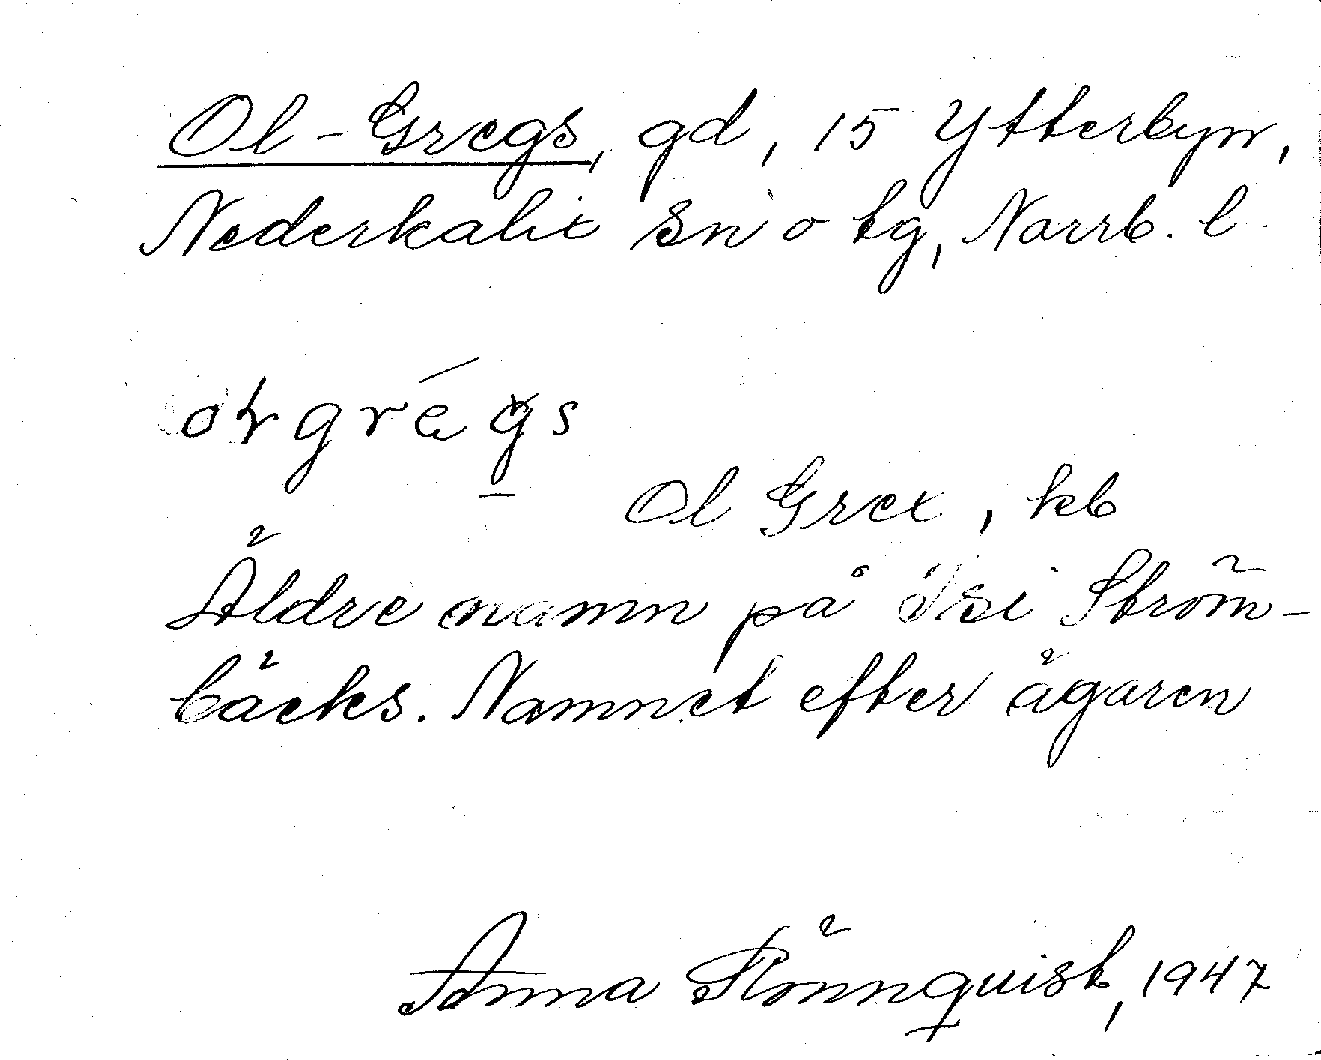 Ol-Gregs, gd, 15 Ytterbyn,
Nederkalix sn o tg, Norrb. l.
Ol Grex, kb
Äldre namn på Isi Ström-
bäcks. Namnet efter ägaren
Anna Rönnquist, 1947